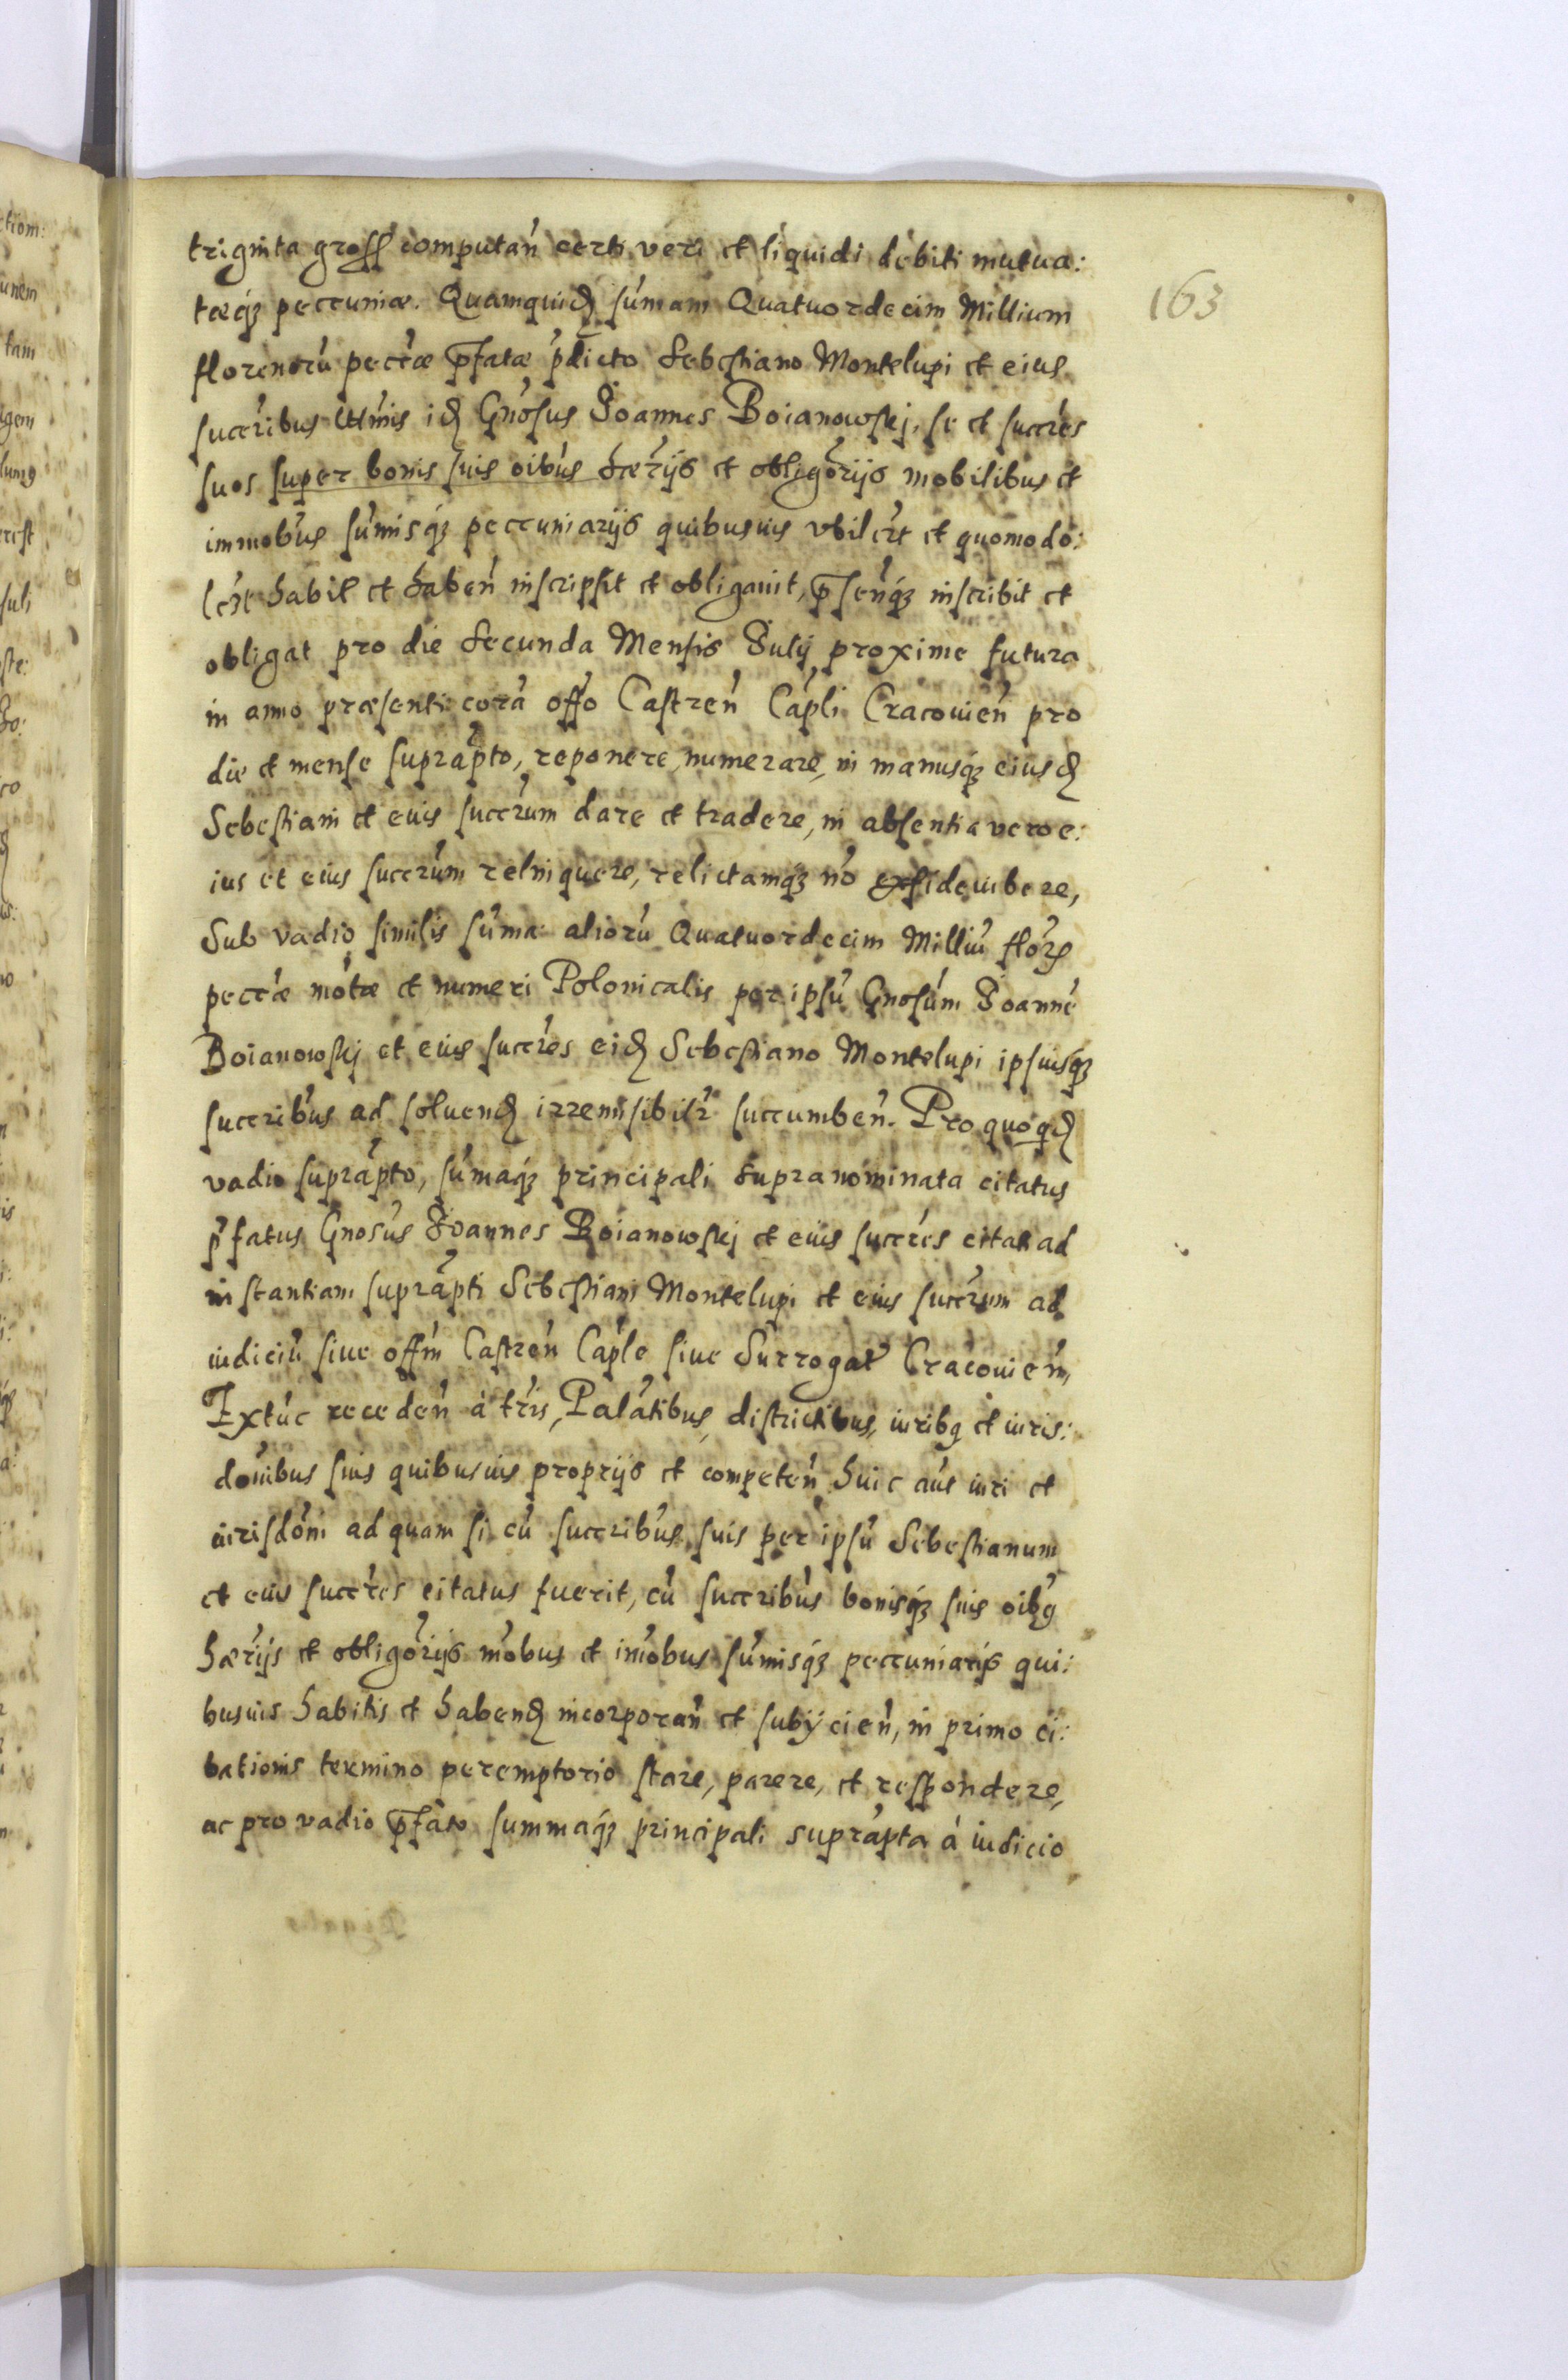 163
triginta gross computań certi veri et liquidi debiti mutua:
tæq₃ pecuniæ. Quamquid sūmam Quatuordecim Millium
florenorū pectæ pfatæ pdicto Sebestiano Montelupi et eius
succribus idē Gnosus Joannes Boianowskj, se et succres
suos super bonis suis oibus hæryis et obligorijs mobilibus et
immobus sūmisq₃ peccuniarijs quibusuis vbilt et quomodo:
lt habit et habeń inscripsit et obligauit, pseńq₃ inscribit et
obligat pro die Secunda Mensis Julij proxime futura
in anno præsenti corā offo Castreń Capli Cracouień pro
die et mense suprapto, reponere, numerare, in manusq₃ eiusd
Sebestiani et eius succrum dare et tradere, in absentia vero e:
ius et eius succrum relinquere, relictamq₃ nō
Sub vadio similis sūma aliorū Quatuordecim Milliū flor
pectæ motæ et numeri Polonicalis per ipsū Gnosum Joannē
Boianowskj et eius succres eid Sebestiano Montelupi ipsiusq₃
succribus ad soluend irremisibilr succumbeń. Pro quoqd
vadio suprapto, sūmaq₃ principali supranominata citatus
pfatus Gnosus Joannes Boianowskj et eius succres citat ad
instantiam suprapti Sebestiani Montelupi et eius succrum ad
iudiciū siue offm Castreń Caple siue Surrogat Cracouień,
Extūc recedeń à tris, Palatibus, districtibus, iuribg et iuris:
donibus suis quibusuis proprijs et competeń huic aut iuri et
iurisdoni ad quam si cū succribus suis per ipsū Sebestianum
et eius succres citatus fuerit, cū succribus bonisq₃ suis oibg
hærijs et obligorijs mobus et imobus sūmisq₃ peccuniarijs qui:
busuis habitis et habend incorporań et subijcień, in primo ci:
tationis termino peremptorio stare, parere, et respondere,
ac pro vadio pfato summaq₃ principali suprapta à iudicio